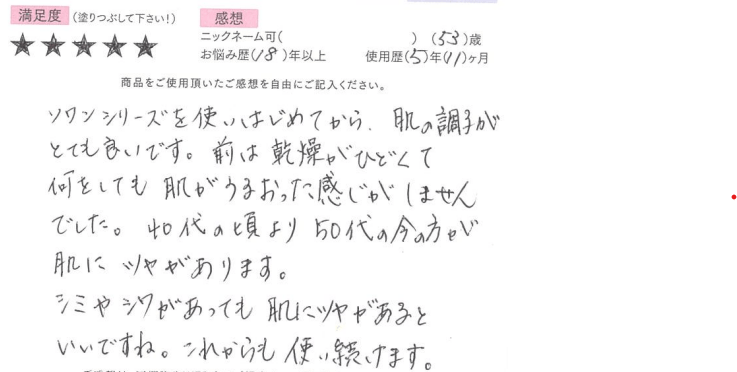 満足度 (塗りつぶして下さい!) 感想
★★★★★ ニックネーム可( ) (53)歳
お悩み歴(18)年以上 使用歴(5)年(11)ヶ月
商品をご使用頂いたご感想を自由にご記入ください。
ソワンシリーズを使いはじめてから、肌の調子が
とても良いです。前は乾燥がひどくて
何をしても肌がうるおった感じがしません
でした。40代の頃より50代の今の方が
肌にツヤがあります。
シミやシワがあっても肌にツヤがあると
いいですね。これからも使い続けます。